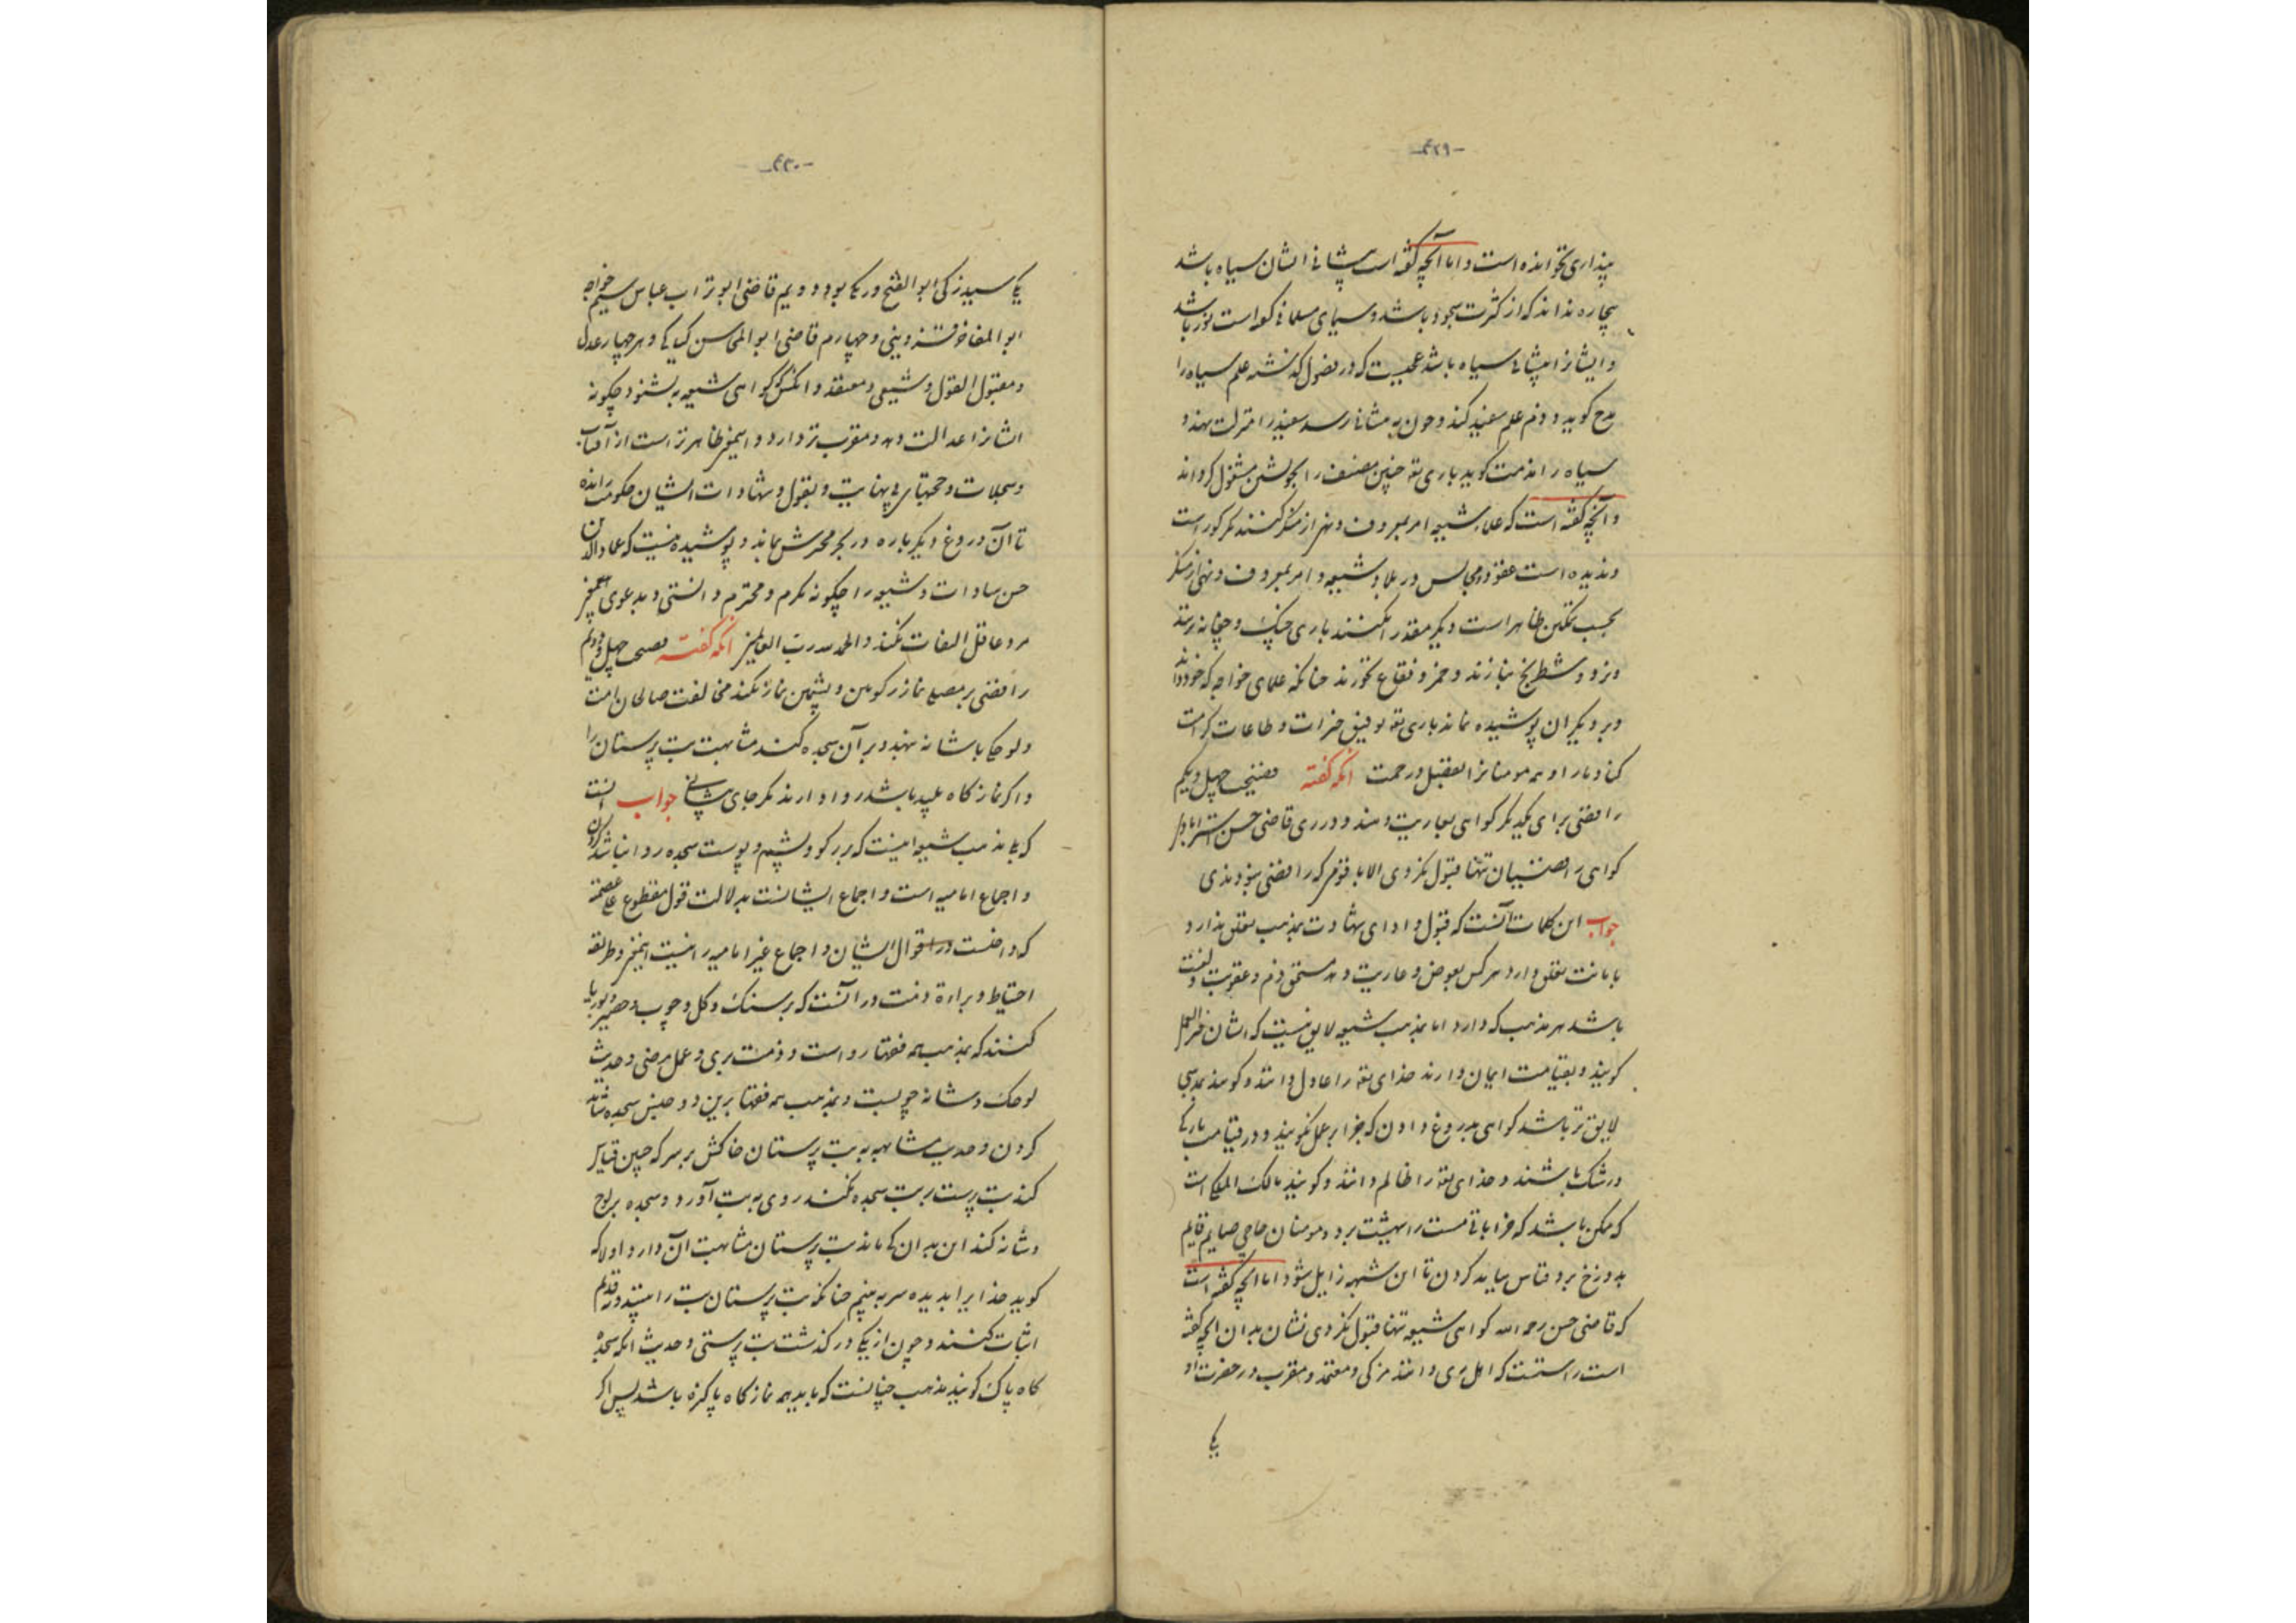 -۴۲۹-
پنداری نخوانده است و اما آنچه گفته است پیشانی ایشان سیاه باشد
بیچاره نداند که از کثرت سجود باشد و سیمای مسلمانی که است نور باشد
و ایشانرا پیشانی سیاه باشد عجبست که در فصول گذشته علم سیاه را
مدح گوید و ذم علم سفید کند و چون به پیشانی رسد سفید را منزلت نهد و
سیاه را مذمت گوید باری تع چنین مصنف را بخویشتن مشغول گرداند
و آنچه گفته است که علماء شیعه امر بمعروف و نهی از منکر نکنند مگر کور است
و ندیده است عقود مجالس در بلاد شیعه و امر بمعروف و نهی از منکر
بحسب تمکین ظاهر است و دیگر مقدر نکنند باری چنگ و چغانه نزنند
و نرد و شطرنج نبازند و خمر و فقاع نخورند چنانکه علمای خواجه که خود داند
و بر دیگران پوشیده نماند باری تع توفیق خیرات و طاعات کرامت
کناد ما را و همه مومنانرا بفضل و رحمت آنکه گفته فضیحت چهل و یکم
رافضی برای یکدیگر گواهی بعاریت دهند و در ری قاضی حسن استرابادی
گواهی رافضیان تنها قبول نکردی الا با قومی که رافضی نبودندی
جواب این کلمات آنست که قبول و ادای شهادت بمذهب تعلق ندارد
بامانت تعلق دارد هر کس بعوض و عاریت دهد مستحق ذم و عقوبت و لعنت
باشد هر مذهب که دارد اما بمذهب شیعه لایق نیست که ایشان جزاء العمل
گویند و بقیامت ایمان دارند خدای تع را عادل دانند و گویند بمذهبی
لایق تر باشد گواهی بدروغ دادن که جزا بر عمل نگویند و در قیامت بارکی
در شک باشند و خدای تع را ظالم دانند و گویند مالک الملک است
که ممکن باشد که خراباتی مست را ببهشت برد و مومنان حاجی صایم قایم
بدوزخ برد قیاس بباید کردن تا این شبهه زایل شود اما آنچه گفته است
که قاضی حسن رحمه الله گواهی شیعه تنها قبول نکردی نشان بدان آنچه گفته
است راستست که اهل ری دانند مزکی و معتمد و مقرب در حضرت او
یکی
-۴۳۰-
یکی سید زکی ابو الفتح ورکی بود و دویم قاضی ابو تراب عباس سیم خواجه
ابو المفاخر قزوینی و چهارم قاضی ابو المحاسن کیکی و هر چهار عدل
و مقبول القول و شیعی و معتقد و آنکس که گواهی شیعه نشنود چگونه
ایشانرا عدالت دهد و مقرب تر دارد و این معنی ظاهر تر است از آفتاب
و سجلات و حجتهای بی نهایت و بقول و شهادات ایشان حکومت رانده
تا آن دروغ دیگر باره در بحر محرش بماند و پوشیده نیست که عماد الدین
حسن سادات و شیعه را چگونه مکرم و محترم دانستی و بدعوی بی معنی
مرد عاقل التفات نکند و الحمد لله رب العالمین آنکه گفته فضیحت چهل و دویم
رافضی بر مصلی نماز رکوئین و پشمین نماز نکند مخالفت صالحان امت
و لوحکی با شانه نهند و بر آن سجده کنند مشابهت بت پرستان را
و اگر نماز گاه پلید باشد روا دارند مگر جای پیشانی جواب آنست
که بمذهب شیعه اینست که بر رکو و پشم و پوست سجده روا نباشد کردن
و اجماع امامیه است و اجماع ایشانست بدلالت قول مقطوع علی عصمته
که داخلست در اقوال ایشان و اجماع غیر امامیه را نیست این معنی و طریقه
احتیاط و براءة ذمت در آنست که بر سنگ و گل و چوب و حصیر و بوریا
کنند که بمذهب همه فقها روا است و ذمت بری و عمل مرضی و حدیث
لوحک و شانه چوبست و بمذهب همه فقها برین دو جنس سجده شاید
کردن و حدیث مشابهه به بت پرستان خاکش بر سر که چنین قیاس
کند بت پرست بر بت سجده نکند روی به بت آورد و سجده بر لوح
و شانه کند این بدان کی ماند بت پرستان مشابهت آن دارد اولا که
گوید خدایرا بدیده سر به بینیم چنانکه بت پرستان بت را بینند و نه قدیم
اثبات کنند و چون از یکی در گذشت بت پرستی و حدیث آنکه سجده
گاه پاک گویند مذهب چنانست که باید همه نماز گاه پاکیزه باشد پس اگر